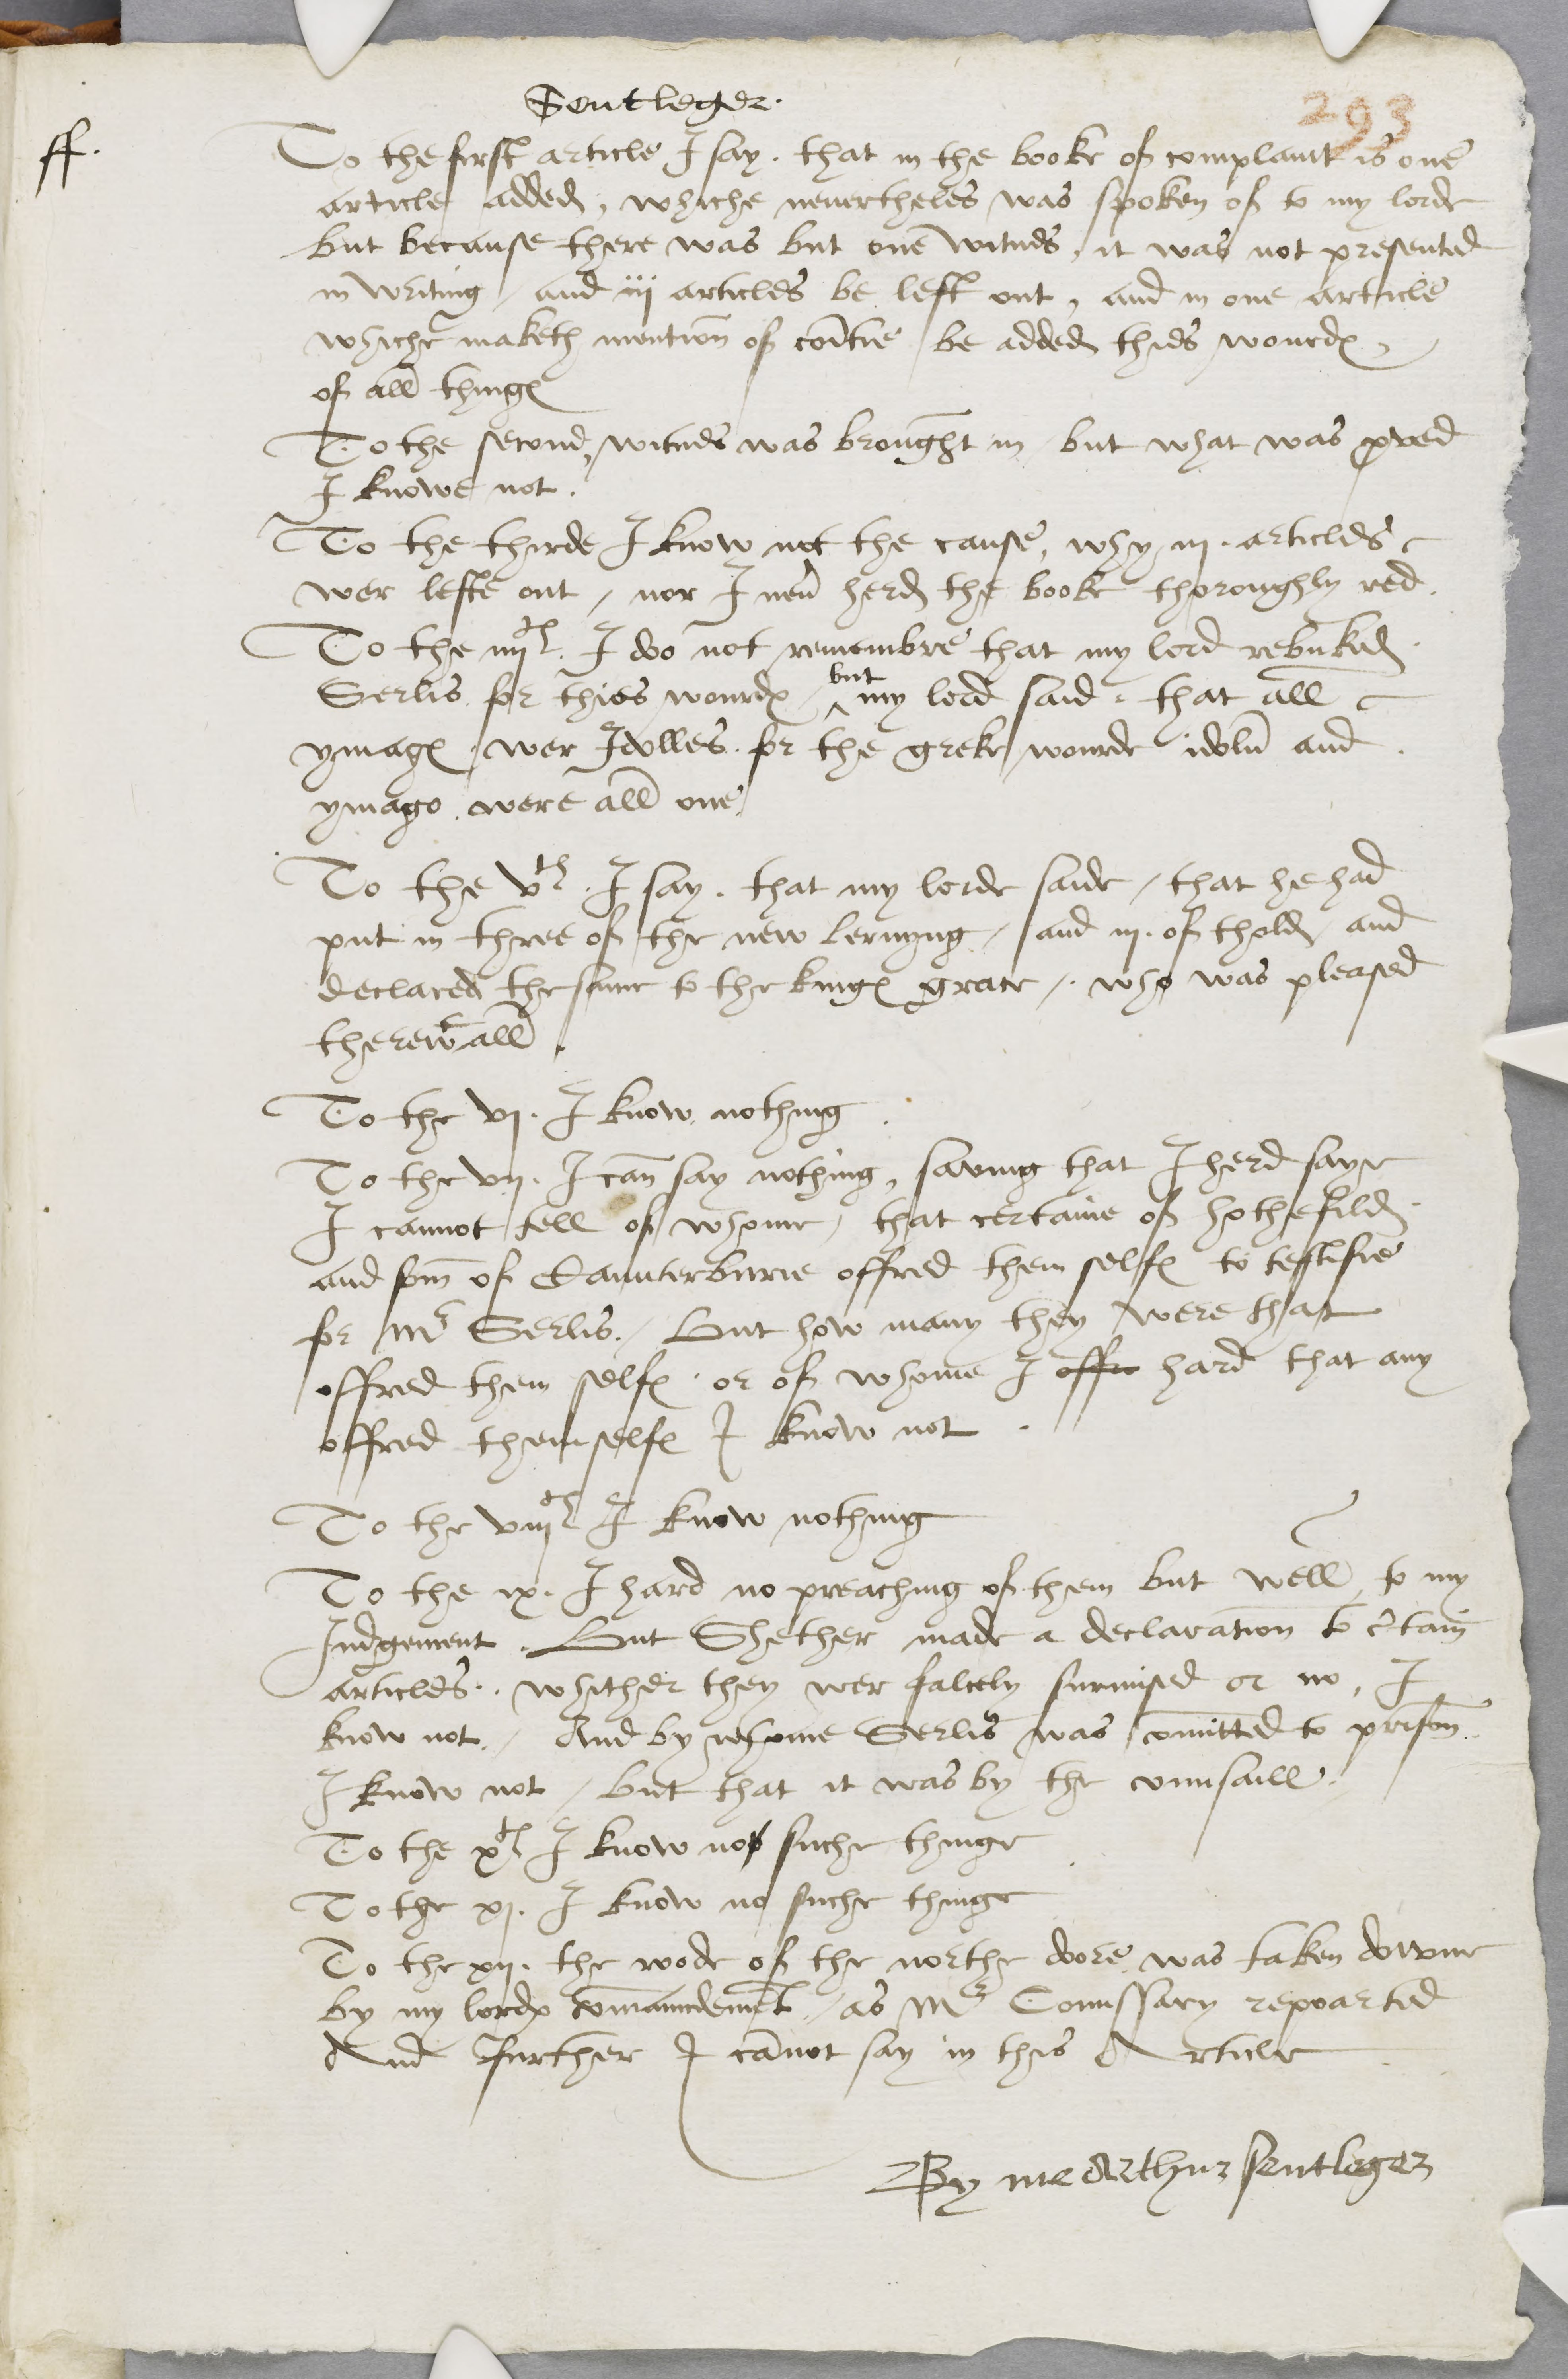 Sentleger.
293
ff.
To the first article I say. that in the booke of complaint is one
article added, whiche neuertheles was spoken of to my lorde
but because there was but one witnes, it was not presented
in writing / and iij articles be left out, and in one article
whiche maketh mention of be added thies wourdes,
of all thinges
To the second, witnes was brought in / but what was proved
I knowe not.
To the thirde I know not the cause, why iij. articles
wer lefte out / nor I neuer herd the booke thoroughly red.
To the iiijth. I do not remembre that my lord rebuked
Serlis for thies wourdes / ^but my lord said. that all
ymages wer Idolles. for the greke wourde idolum and
ymago were all one
To the vth. I say. that my lorde saide / that he had
put in three of the new lernyng / and iij. of tholde / and
declared the same to the kinges grace /. who was pleased
therewt all.
To the vj. I know nothing
To the vij. I can say nothing, saving that I herd saye
I cannot tell of whome / that certaine of Hothefild
and som of Caunterburie offred them selfes to testifie
for Mr Serlis. / But how many they were that
offred them selfes. or of whome I offre hard that any
offred themselfes I know not.
To the viijth I know nothing
To the ix. I hard no preaching of them but well to my
Judgement. But Shether made a declaration to certain
articles.. whither they wer falcely surmised or no, I
know not. / And by whome Serlis was comitted to prison
I know not / but that it was by the counsaill.
To the xth I know no suche thinge
To the xj. I know no suche thinge
To the xij. the rode of the northe dore was taken downe
by my lordes commaundement, as Mr Comissary repoarted
And further I cannot say in this Article
By me Arthur sentleger